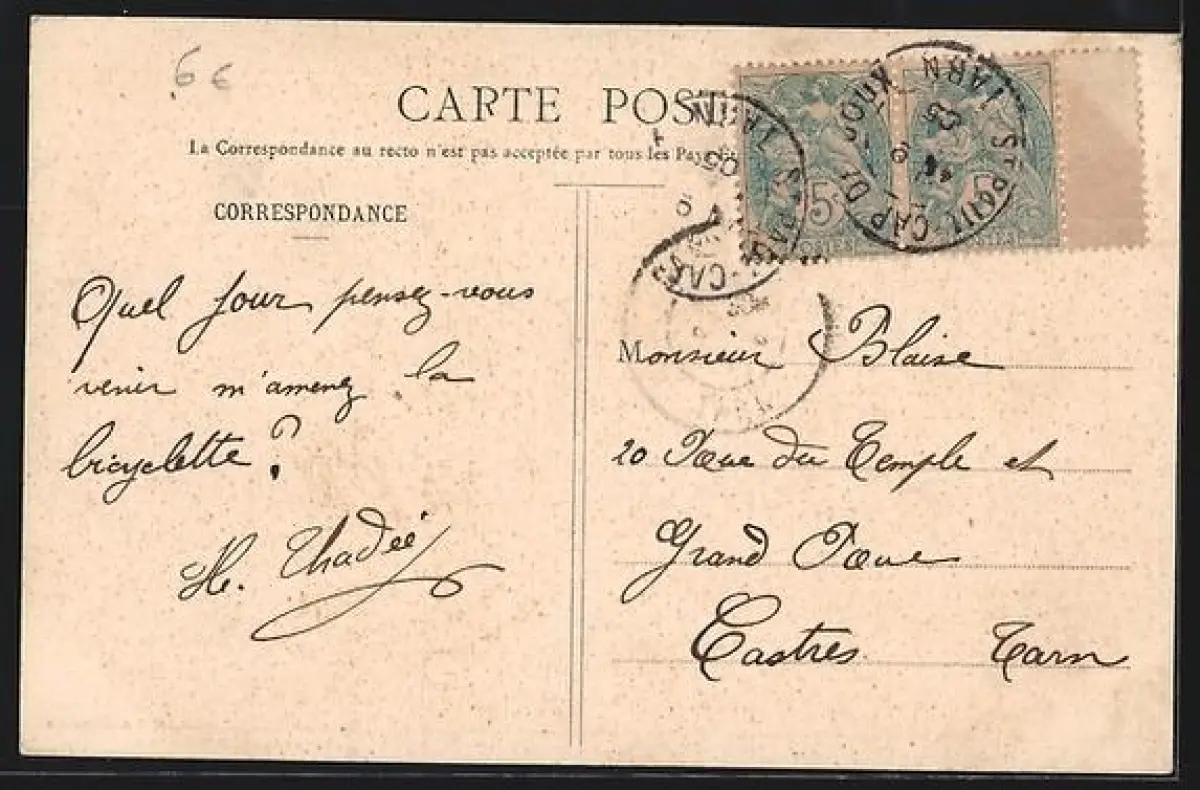 6 €
CARTE POST
La Correspondance au recto n'est pas acceptée par tous les Pays
CORRESPONDANCE
Quel jour pensez-vous
venir m'amenez la
bicyclette?
H. Thadéé
5
Sᵗ PAUL-CAP-DE-JOUX
TARN
05
Monsieur Blaise
20 Rue du Temple et
Grand Rue
Castres Tarn